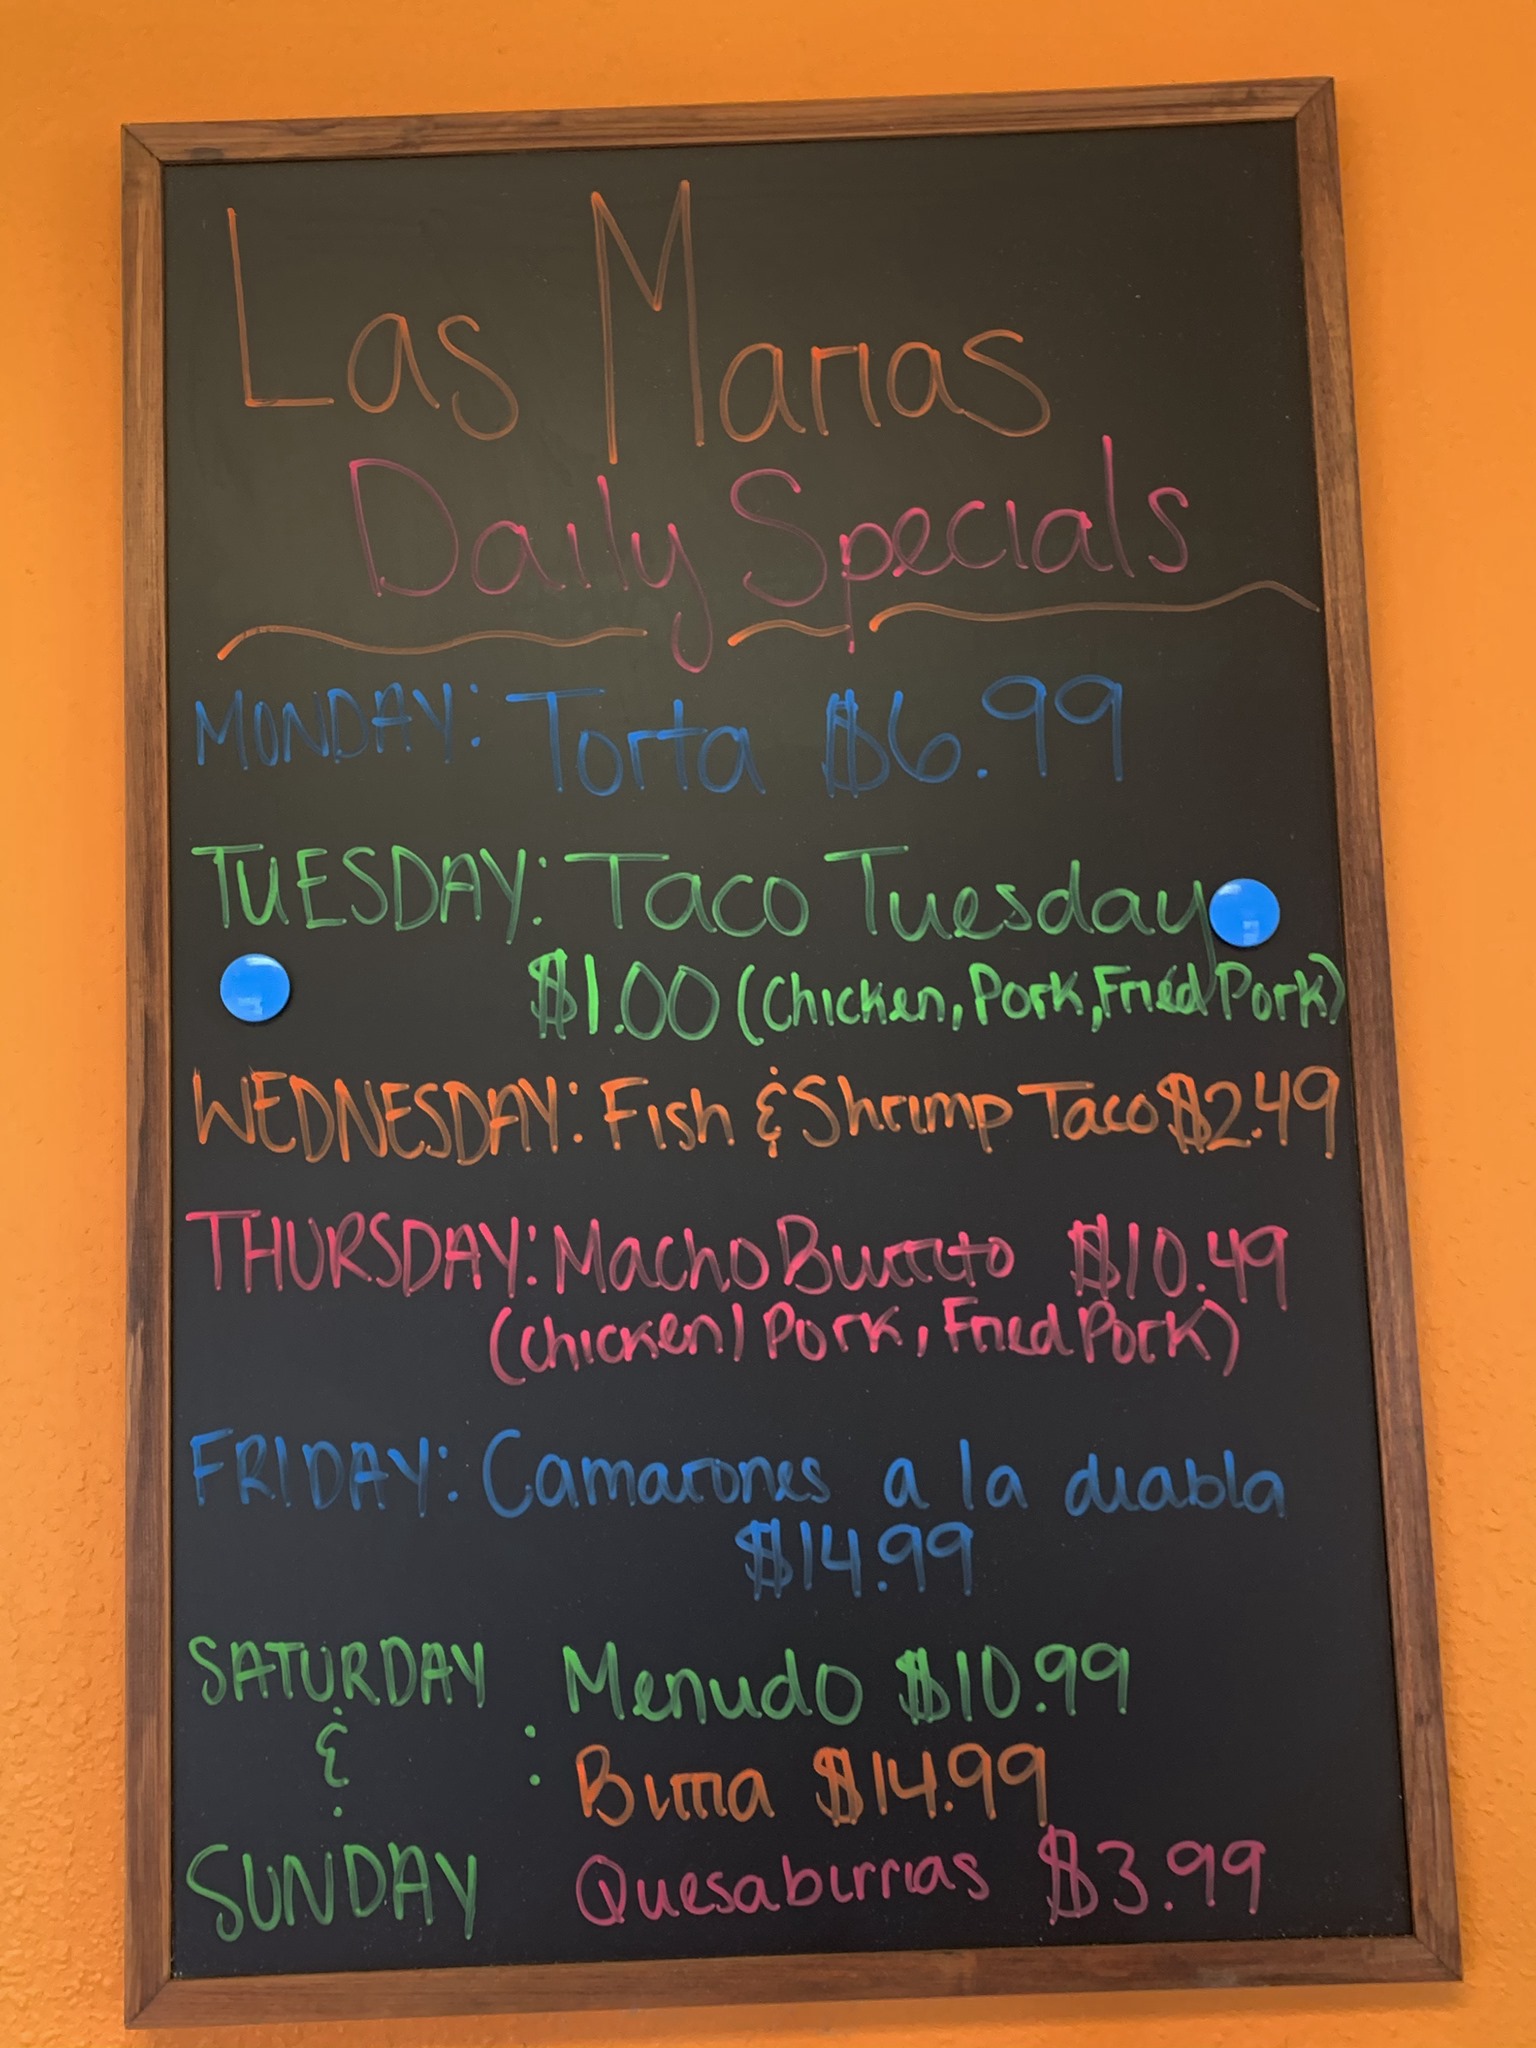 Las Marias
Daily Specials
MONDAY: Torta $6.99
TUESDAY: Taco Tuesday
$1.00 (Chicken, Pork, Fried Pork)
WEDNESDAY: Fish & Shrimp Taco $2.49
THURSDAY: Macho Burrito $10.49
(Chicken, Pork, Fried Pork)
FRIDAY: Camarones a la diabla
$14.99
SATURDAY & SUNDAY : Menudo $10.99
Birria $14.99
Quesabirrias $3.99